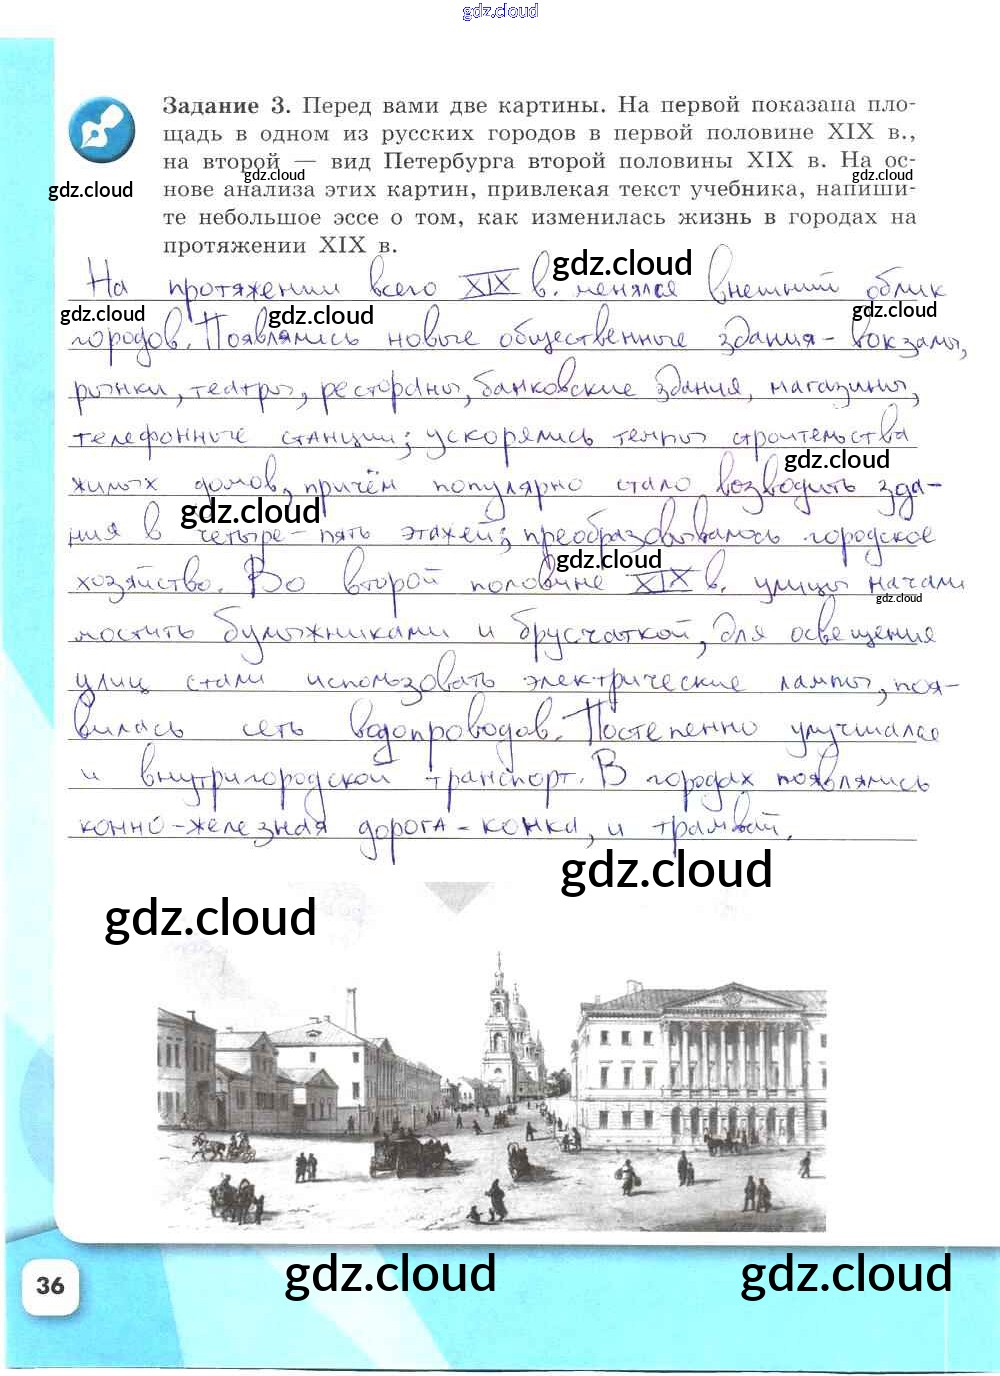 gdz.cloud
Задание 3. Перед вами две картины. На первой показана пло-
щадь в одном из русских городов в первой половине XIX в.,
на второй — вид Петербурга второй половины XIX в. На ос-
gdz.cloud
gdz.cloud
gdz.cloud
нове анализа этих картин, привлекая текст учебника, напиши-
те небольшое эссе о том, как изменилась жизнь в городах на
протяжении XIX в.
gdz.cloud
На протяжении всего XIX в. менялся внешний облик
gdz.cloud
gdz.cloud
gdz.cloud
городов. Появлялись новые общественные здания - вокзалы,
рынки, театры, рестораны, банковские здания, магазины,
телефонные станции; ускорялись темпы строительства
gdz.cloud
жилых домов, причём популярно стало возводить зда-
gdz.cloud
ния в четыре-пять этажей; преобразовывалось городское
gdz.cloud
хозяйство. Во второй половине XIX в. улицы начали
gdz.cloud
мостить булыжниками и брусчаткой, для освещения
улиц стали использовать электрические лампы, поя-
вилась сеть водопроводов. Постепенно улучшался
и внутригородской транспорт. В городах появлялись
конно-железная дорога - конка, и трамвай.
gdz.cloud
gdz.cloud
36
gdz.cloud
gdz.cloud